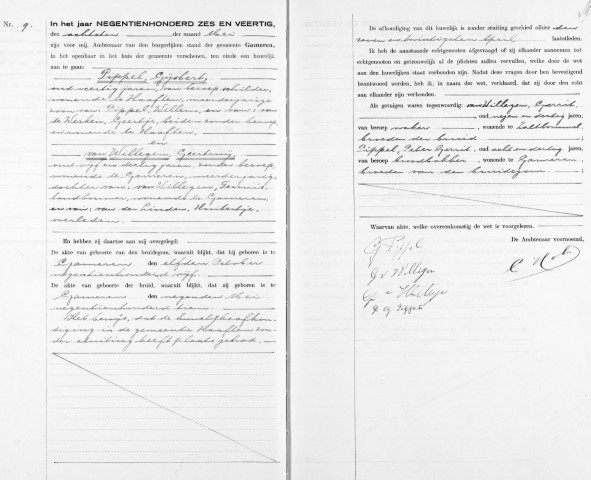 Nr. 9.
In het jaar NEGENTIENHONDERD ZES EN VEERTIG,
den achtsten der maand Mei
zijn voor mij, Ambtenaar van den burgerlijken stand der gemeente Gameren,
in het openbaar in het huis der gemeente verschenen, ten einde een huwelijk
aan te gaan:
Pippel, Gijsbert,
oud veertig jaren, van beroep schilder,
wonende te Haaften, meerderjarige
zoon van Pippel, Willem, en van: van
te Werken, Geertje, beiden zonder beroep
en wonende te Haaften.
en
van Willigen, Geertruij
oud vijf en dertig jaren, zonder beroep,
wonende te Gameren, meerderjarige
dochter van: van Willigen, Teunis,
landbouwer, wonende te Gameren
en van: van der Linden, Huibertje,
overleden
En hebben zij daartoe aan mij overgelegd:
De akte van geboorte des bruidegoms, waaruit blijkt, dat hij geboren is te
Gameren den elfden October
negentienhonderd vijf.
De akte van geboorte der bruid, waaruit blijkt, dat zij geboren is te
Gameren den negenden Mei
negentienhonderd tien.
Het bewijs, dat de huwelijksafkon-
diging in de gemeente Haaften zon-
der stuiting heeft plaats gehad.
De afkondiging van dit huwelijk is zonder stuiting geschied alhier den
zeven en twintigsten April laatstleden.
Ik heb de aanstaande echtgenooten afgevraagd of zij elkander aannemen tot
echtgenooten en getrouwelijk al de plichten zullen vervullen, welke door de wet
aan den huwelijken staat verbonden zijn. Nadat deze vragen door hen bevestigend
beantwoord werden, heb ik, in naam der wet, verklaard, dat zij door den echt
aan elkander zijn verbonden.
Als getuigen waren tegenwoordig: van Willigen, Gerrit,
oud negen en dertig jaren,
van beroep wonende te Zaltbommel,
broeder der bruid
Pippel, Peter Gerrit, oud acht en dertig jaren,
van beroep broodbakker, wonende te Gameren,
broeder van den bruidegom
Waarvan akte, welke overeenkomstig de wet is voorgelezen.
De Ambtenaar voornoemd,
G. Pippel
G v Willigen
G v Willigen
P. G. Pippel